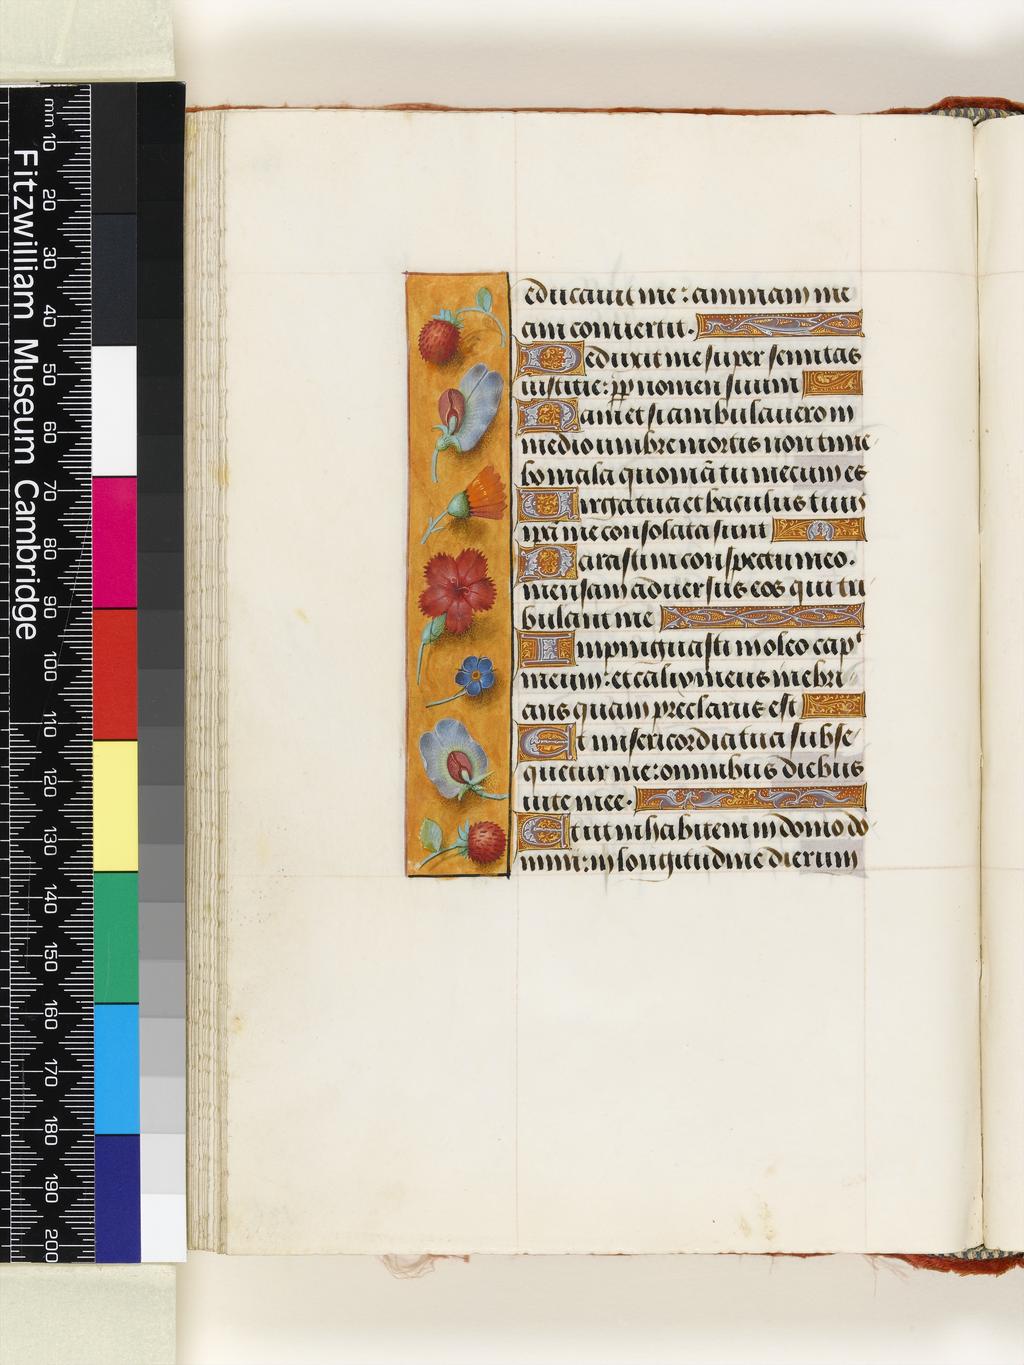 educavit me : animam me
am convertit .
Deduxit me super semitas
iustitie : pp nomen suum
Nam et si ambulavero in
medio umbre mortis non time
bo mala quoniã tu mecum es
Virga tua et baculus tuus
ipã me consolata sunt
Parasti in conspectu meo .
mensam adversus eos qui tri
bulant me
Inpinguasti in oleo cap
meum : et calix meus inebri
ans quam preclarus est
Et misericordia tua subse
quetur me : omnibus diebus
vite mee .
Et ut inhabitem in domo do
mini : in longitudine dierum
Fitzwilliam Museum Cambridge
mm 10 20 30 40 50 60 70 80 90 100 110 120 130 140 150 160 170 180 190 200